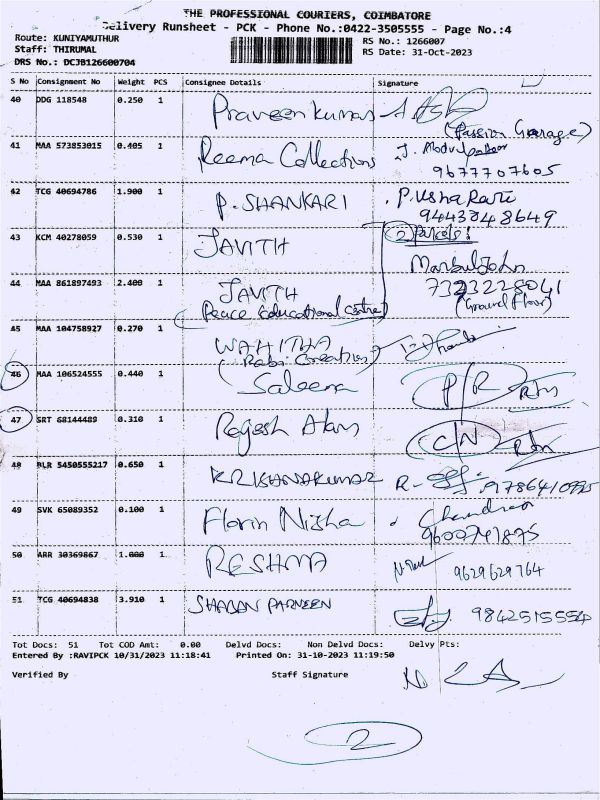 THE PROFESSIONAL COURIERS, COIMBATORE
Delivery Runsheet - PCK - Phone No.:0422-3505555 - Page No.:4
Route: KUNIYAMUTHUR
RS No.: 1266007
Staff: THIRUMAL
RS Date: 31-Oct-2023
DRS No.: DCJB126600704
S No Consignment No Weight PCS Consignee Details Signature
40 DDG 118548 0.250 1 Praveen kumar
(Passion Garage)
41 MAA 573853015 0.405 1 Reema Collections J. Abdul
9677707605
42 TCG 40694786 1.900 1 P. SHANKARI P. Usha Rani
9443048649
43 KCM 40278059 0.530 1 JAVITH 2 Parcels:
44 MAA 861897493 2.400 1 JAVITH 7323228041
(Peace Educational Centre) (Ground Floor)
45 MAA 104758927 0.270 1 WAHITHA
(Rabi Creation)
46 MAA 106524555 0.440 1 Saleema P/R Rtn
47 SRT 68144489 0.310 1 Rajesh Alam C/N Rtn
48 BLR 5450555217 0.650 1 KRISHNAKUMAR
49 SVK 65089352 0.100 1 Florin Nisha Chandran
9600741875
50 ARR 30369867 1.000 1 RESHMA 9629629764
51 TCG 40694838 3.910 1 SHABAN PARVEEN 9842515554
Tot Docs: 51 Tot COD Amt: 0.00 Delvd Docs: Non Delvd Docs: Delvy Pts:
Entered By :RAVIPCK 10/31/2023 11:18:41 Printed On: 31-10-2023 11:19:50
Verified By Staff Signature
2